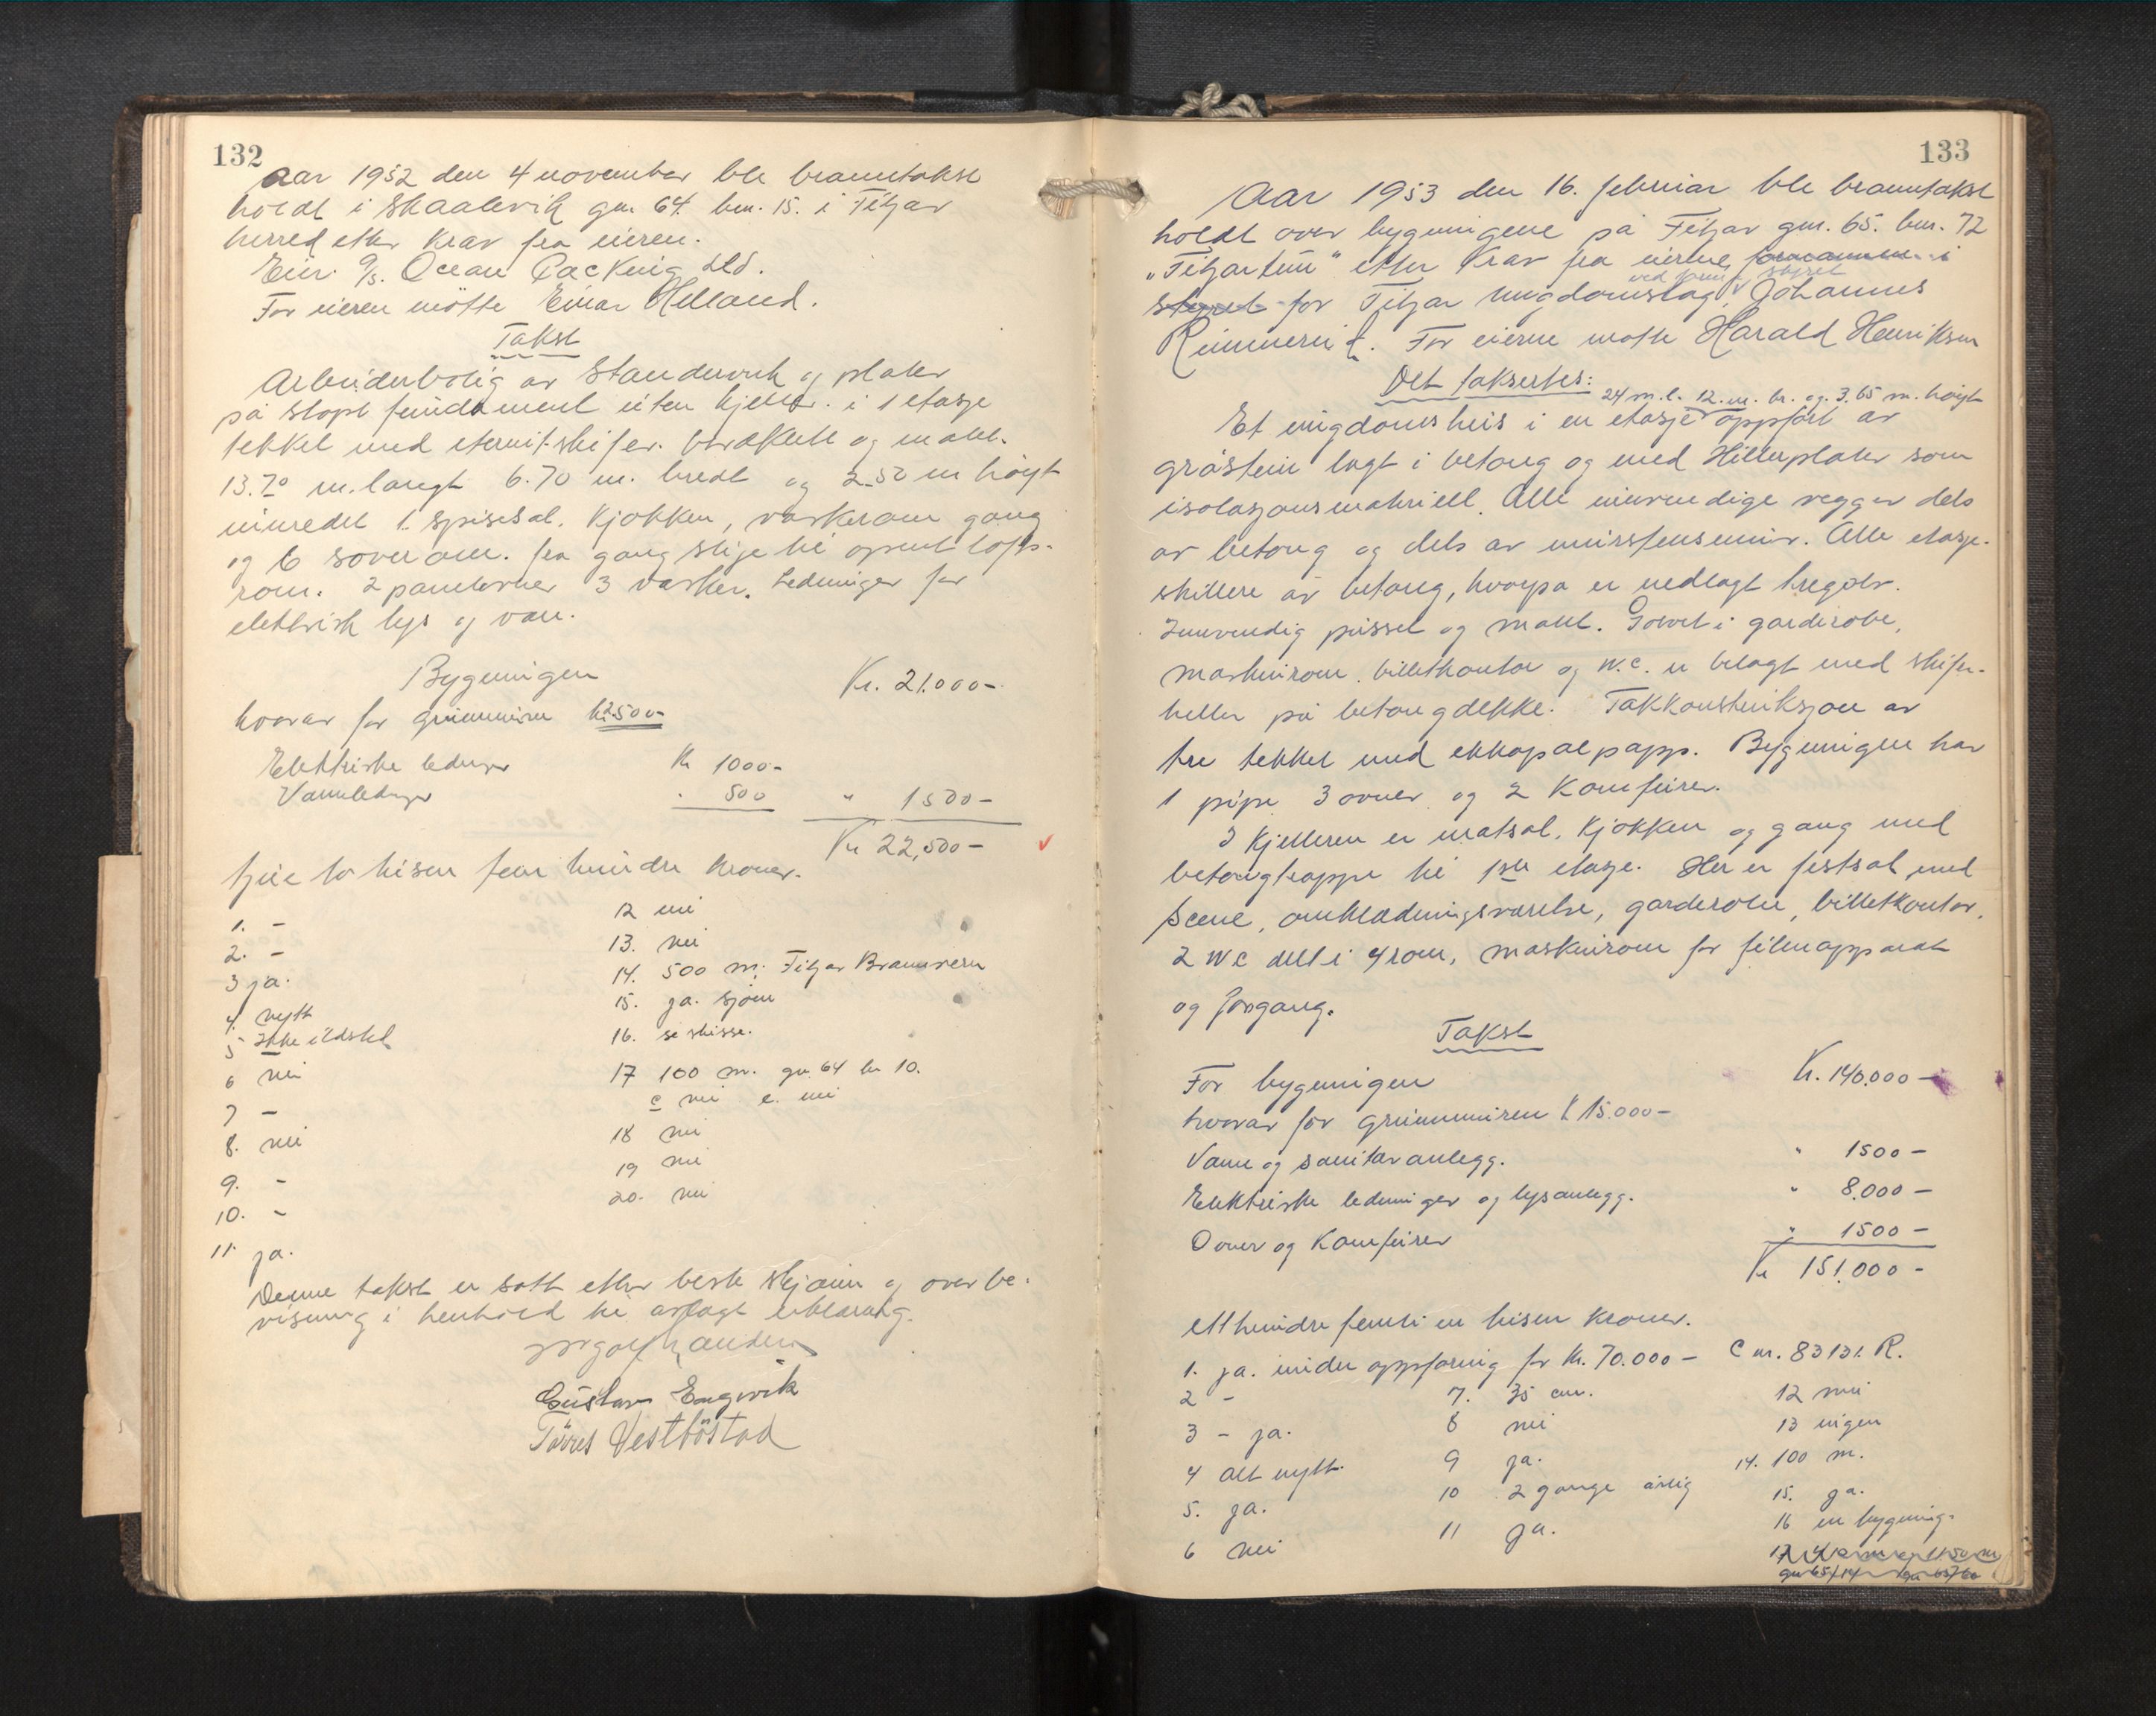 132
Aar 1952 den 4 november ble branntakst
holdt i Skaalevik gnr. 64. bnr. 15. i Fitjar
herred etter krav fra eieren.
Eier. A/S. Ocean Packing Ltd.
For eieren møtte Einar Helland.
Takst
Arbeiderbolig av Standerverk og plater
på støpt fundament uten kjeller. i 1 etasje
tekket med eternitskifer. utvendig malt.
13.70 m. langt 6.70 m. bredt og 2.50 m høgt
innredet 1. spisesal. kjøkken, vaskerom gang
og 6 soverom. fra gang stige til opent lofts-
rom. 2 panelovner 3 vasker. Ledninger for
elektrisk lys og vann.
Bygningen Kr. 21.000-
hvorav for grunnmuren kr. 2500-
Elektriske ledninger Kr 1000-
Vannledninger " 500 " 1500-
Kr 22,500-
tjue to tusen fem hundre kroner.
1. -
2. -
3 ja.
4. nytt
5 Ikke ildsted
6 nei
7 -
8. nei
9. -
10. -
11. ja.
12 nei
13. nei
14. 500 m. Fitjar Brannvern
15. ja. sjøen
16. se skisse.
17 100 m. gnr. 64 bnr 10.
c nei e. nei
18 nei
19 nei
20. nei
Denne takst er satt etter beste skjønn og overbe-
visning i henhold til avlagt erklæring.
Gustav Engevik
Törres Vestböstad
133
Aar 1953 den 16. februar ble branntakst
holdt over bygningene på Fitjar gnr. 65. bnr. 72
"Fitjartun" etter krav fra eierne formannen i
ved form. i styret
styret for Fitjar ungdomslag, Johannes
Rimmereit. For eierne møtte Harald Henriksen
Det takseres:
24 m. l. 12. m. br. og. 3.65 m. høgt
Et ungdomshus i en etasje oppført av
gråstein lagt i betong og med Hillerplater som
isolasjonsmateriell. Alle innvendige vegger dels
av betong og dels av mursteinsmur. Alle etasje-
skillere av betong, hvorpå er nedlagt tregolv.
Innvendig pusset og malt. Golvet i garderobe,
maskinrom, billettkontor og W.C. er belagt med skifer-
heller på betongdekke. Takkonstruksjon av
tre tekket med ekkopalpapp. Bygningen har
1 pipe 3 ovner og 2 Komfyrer.
I kjelleren er matsal, kjøkken og gang med
betongtrappe til 1ste etasje. Her er festsal med
scene, omkledningsværelse, garderobe, billettkontor,
2 WC delt i 4 rom, maskinrom for filmapparat
og forgang.
Takst
For bygningen Kr. 140.000-
hvorav for grunnmuren k 15.000-
Vann og sanitæranlegg. " 1500-
Elektriske ledninger og lysanlegg. " 8.000-
Ovner og Komfyrer " 1500-
Kr 151.000-
etthundre femti en tusen kroner.
1. ja. under oppføring for kr. 70.000- C nr. 83131. R.
2 -
3 - ja.
4 alt nytt.
5. ja.
6 nei
7. 35 cm.
8 nei
9 ja.
10 2 gange årlig
11 ja.
12 nei
13 ingen
14. 100 m.
15. ja.
16 en bygning.